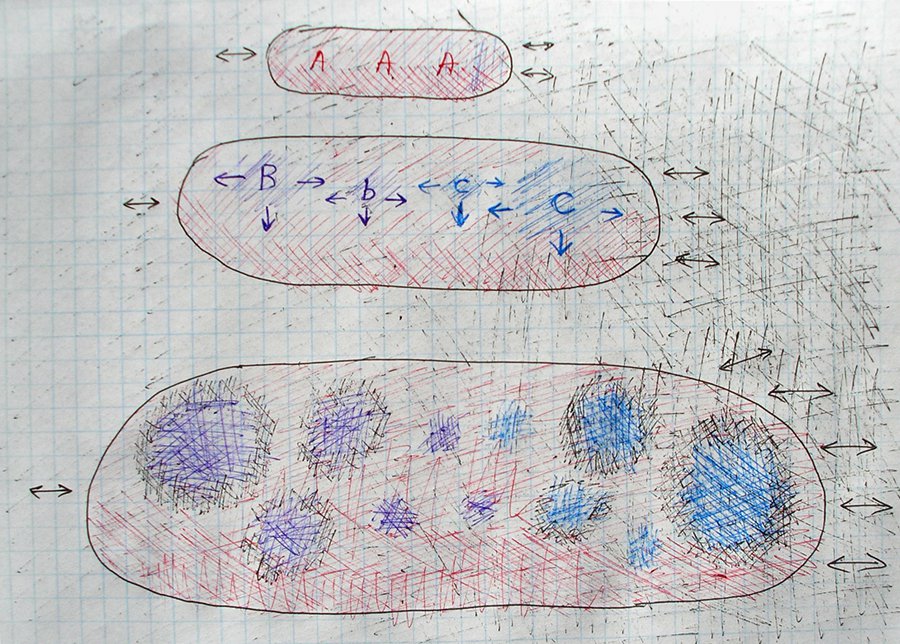 A A A
B b c C